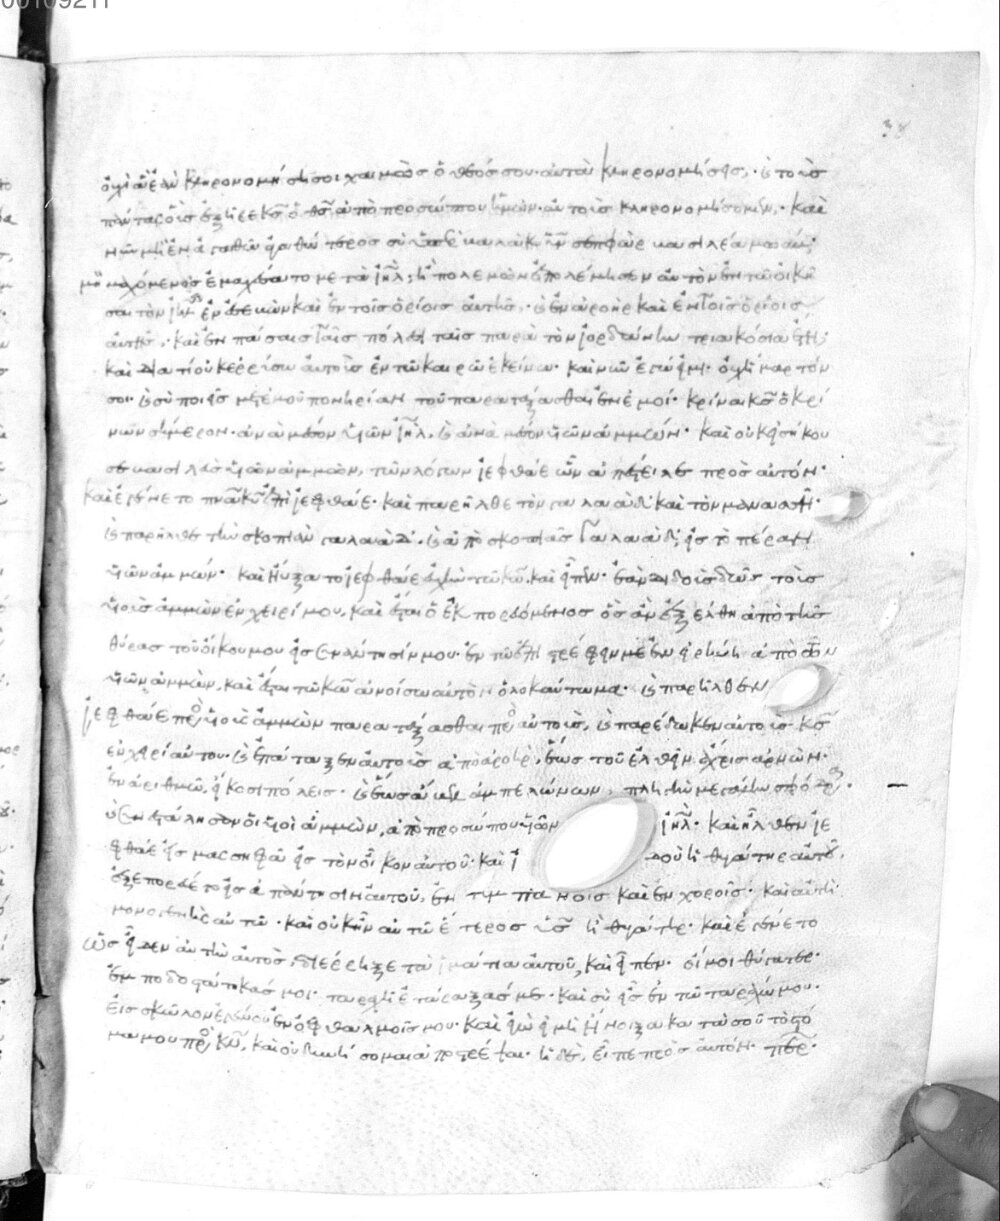 οὐχὶ ἃ ἐὰν κληρονομήσῃ σοι χαμὼς ὁ θεός σου· αὐτὰ κληρονομήσεις· καὶ τοὺς
πάντας οὓς ἐξῆρε κς ὁ θς ἀπὸ προσώπου ἡμῶν· αὐτοὺς κληρονομήσομεν· Καὶ
νῦν μὴ ἐν ἀγαθῷ ἀγαθώτερος σὺ βαλὰκ υἱὸς σεπφὼρ βασιλέα μωάβ·
μὴ μαχόμενος ἐμαχέσατο μετὰ ιηλ, ἢ πολεμῶν ἐπολέμησεν αὐτὸν ἐν τῷ οἰκῆ
σαι τὸν ιηλ ἐν καὶ ἐν τοῖς ὁρίοις αὐτῆς· καὶ ἐν ἀροὴρ καὶ ἐν τοῖς ὁρίοις
αὐτῆς· καὶ ἐν πάσαις ταῖς πόλεσι ταῖς παρὰ τὸν ἰορδάνην τριακόσια ἔτη·
καὶ διατί οὐκ ἐρρύσω αὐτοὺς ἐν τῷ καιρῷ ἐκείνῳ· καὶ νῦν ἐγώ εἰμι· οὐχ ἥμαρτόν
σοι· καὶ σὺ ποιεῖς μετ' ἐμοῦ πονηρίαν τοῦ παρατάξασθαι ἐν ἐμοί· κρίναι κς ὁ κρί
νων σήμερον· ἀνὰ μέσον υἱῶν ιηλ, καὶ ἀνὰ μέσον υἱῶν ἀμμών· Καὶ οὐκ εἰσήκου
σε βασιλεὺς υἱῶν ἀμμών, τῶν λόγων ἰεφθάε ὧν ἀπέστειλε πρὸς αὐτόν·
Καὶ ἐγένετο πνα κυ ἐπὶ ἰεφθάε· καὶ παρῆλθε τὸν γαλαὰδ καὶ τὸν μανασσῆ·
καὶ παρῆλθε τὴν σκοπιὰν γαλαάδ· καὶ ἀπὸ σκοπιᾶς γαλαάδ, εἰς τὸ πέραν
υἱῶν ἀμμών· Καὶ ηὔξατο ἰεφθάε εὐχὴν τῷ κω. καὶ εἶπεν· ἐὰν διδοὺς δῷς τοὺς
υἱοὺς ἀμμὼν ἐν χειρί μου, καὶ ἔσται ὁ ἐκπορευόμενος ὃς ἂν ἐξέλθῃ ἀπὸ τῆς
θύρας τοῦ οἴκου μου εἰς συνάντησίν μου· ἐν τῷ ἐπιστρέφειν με ἐν εἰρήνῃ ἀπὸ τῶν
υἱῶν ἀμμών, καὶ ἔσται τῷ κω ἀνοίσω αὐτὸν ὁλοκαύτωμα· καὶ παρῆλθεν
ἰεφθάε πρὸς υἱοὺς ἀμμὼν παρατάξασθαι πρὸς αὐτούς, καὶ παρέδωκεν αὐτοὺς κς
ἐν χειρὶ αὐτοῦ· καὶ ἐπάταξεν αὐτοὺς ἀπὸ ἀροήρ, ἕως τοῦ ἐλθεῖν ἄχρις ἀρνών·
ἐν ἀριθμῷ, εἴκοσι πόλεις· καὶ ἕως ἀμπελώνων, πληγὴν μεγάλην σφόδρα·
καὶ συνεστάλησαν οἱ υἱοὶ ἀμμών, ἀπὸ προσώπου υἱῶν ιηλ· Καὶ ἦλθεν ἰε
φθάε εἰς μασσηφὰ εἰς τὸν οἶκον αὐτοῦ· καὶ ἰδοὺ ἡ θυγάτηρ αὐτοῦ,
ἐξεπορεύετο εἰς ἀπάντησιν αὐτοῦ, ἐν τυμπάνοις καὶ ἐν χοροῖς· καὶ αὕτη
μονογενὴς αὐτῷ· καὶ οὐκ ἦν αὐτῷ ἕτερος υἱὸς ἢ θυγάτηρ· Καὶ ἐγένετο
ὡς εἶδεν αὐτὴν αὐτός, διέρρηξε τὰ ἱμάτια αὐτοῦ, καὶ εἶπεν· οἴμοι θύγατερ·
ἐμποδοστάτηκάς μοι· ταραχῇ ἐτάραξάς με· καὶ σὺ εἶς ἐν τῷ ταράχῳ μου·
εἰς σκῶλον ἐγένου ἐν ὀφθαλμοῖς μου· Καὶ ἐγώ εἰμι ἤνοιξα κατὰ σοῦ τὸ στό
μα μου πρὸς κν, καὶ οὐ δυνήσομαι ἀποστρέψαι· ἡ δὲ, εἶπε πρὸς αὐτόν· περ·